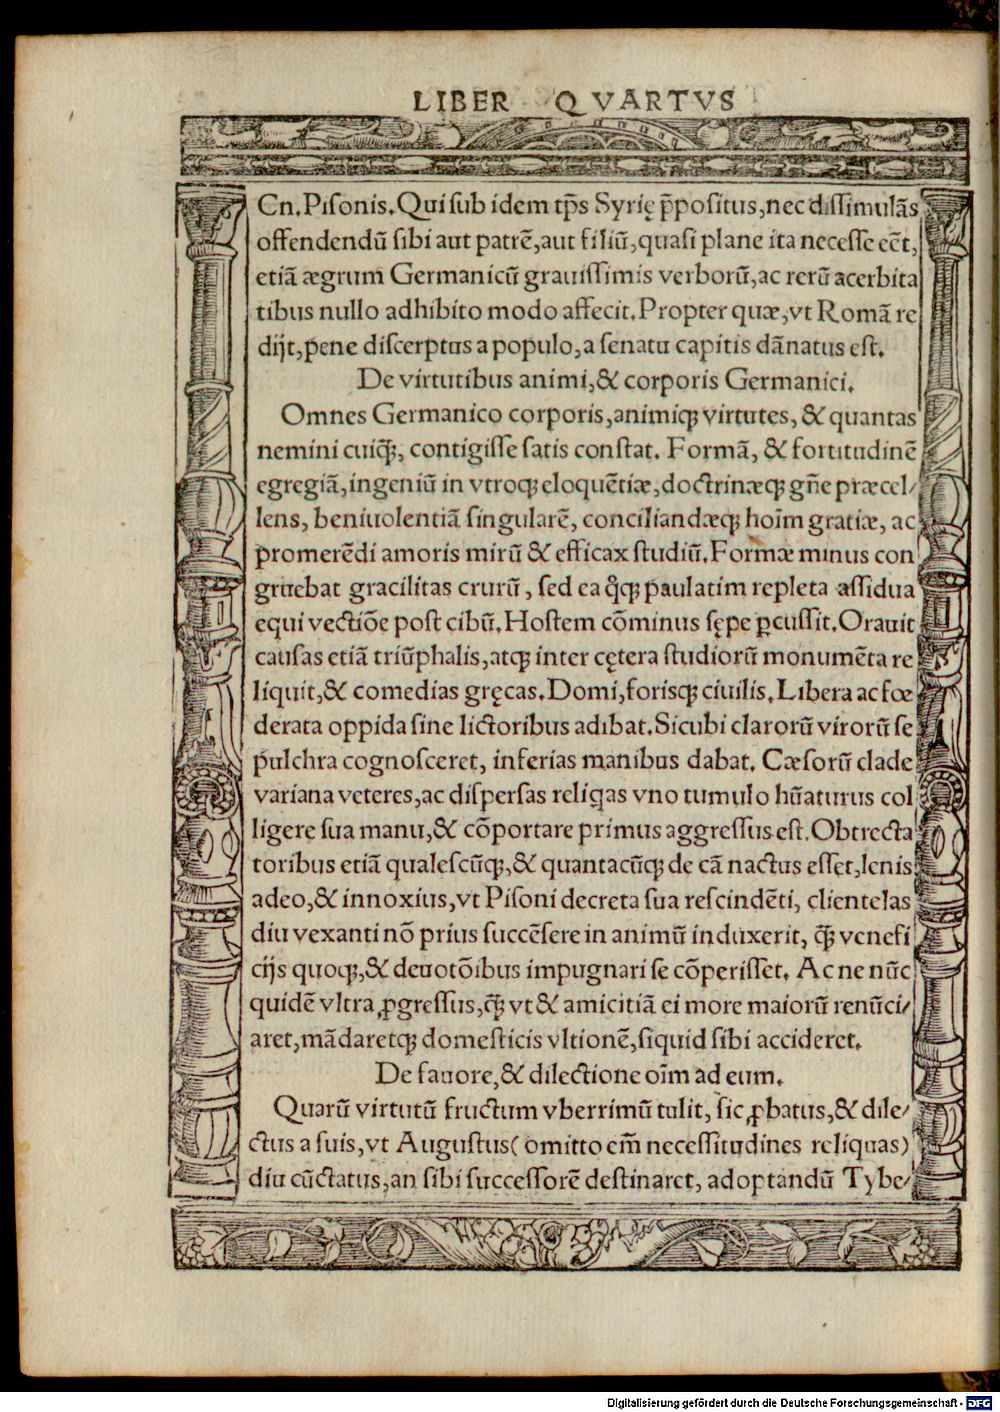 LIBER QVARTVS
Cn.Piſonis.Qui ſub idem tp̄s Syrię p̄poſitus,nec diſſimulās
offendendū ſibi aut patrē,aut filiū,quaſi plane ita neceſſe eēt,
etiā ægrum Germanicū grauiſſimis verborū,ac rerū acerbita
tibus nullo adhibito modo affecit.Propter quæ,vt Romā re
dijt,pene diſcerptus a populo,a ſenatu capitis dānatus eſt.
De virtutibus animi,& corporis Germanici.
Omnes Germanico corporis,animiqꝫ virtutes, & quantas
nemini cuiq̄ꝫ, contigiſſe ſatis conſtat. Formā, & fortitudinē
egregiā,ingeniū in vtroqꝫ eloquētiæ,doctrinæqꝫ gn̄e præcel/
lens, beniuolentiā ſingularē, conciliandæqꝫ hoīm gratiæ, ac
promerēdi amoris mirū & efficax ſtudiū.Formæ minus con
gruebat gracilitas crurū, ſed ea q̊qꝫ paulatim repleta aſſidua
equi vectiōe poſt cibū.Hoſtem cōminus ſępe ꝑcuſſit.Orauit
cauſas etiā triūphalis,atqꝫ inter cętera ſtudiorū monumēta re
liquit,& comedias gręcas.Domi,foriſqꝫ ciuilis.Libera ac fœ
derata oppida ſine lictoribus adibat.Sicubi clarorū virorū ſe
pulchra cognoſceret, inferias manibus dabat. Cæſorū clade
variana veteres,ac diſperſas reliqas vno tumulo hūaturus col
ligere ſua manu,& cōportare primus aggreſſus eſt.Obtrecta
toribus etiā qualeſcūqꝫ,& quantacūqꝫ de cā nactus eſſet,lenis
adeo,& innoxius,vt Piſoni decreta ſua reſcindēti, clientelas
diu vexanti nō prius ſuccēſere in animū induxerit, q̄ꝫ venefi
cijs quoqꝫ,& deuotōibus impugnari ſe cōperiſſet. Ac ne nūc
quidē vltra ꝓgreſſus,q̄ꝫ vt & amicitiā ei more maiorū renūci/
aret,mādaretqꝫ domeſticis vltionē,ſiquid ſibi accideret.
De fauore,& dilectione oīm ad eum.
Quarū virtutū fructum vberrimū tulit, ſic ꝓbatus,& dile/
ctus a ſuis,vt Auguſtus( omitto em̄ neceſſitudines reliquas)
diu cūctatus,an ſibi ſucceſſorē deſtinaret, adoptandū Tybe/
Digitalisierung gefördert durch die Deutsche Forschungsgemeinschaft - DFG